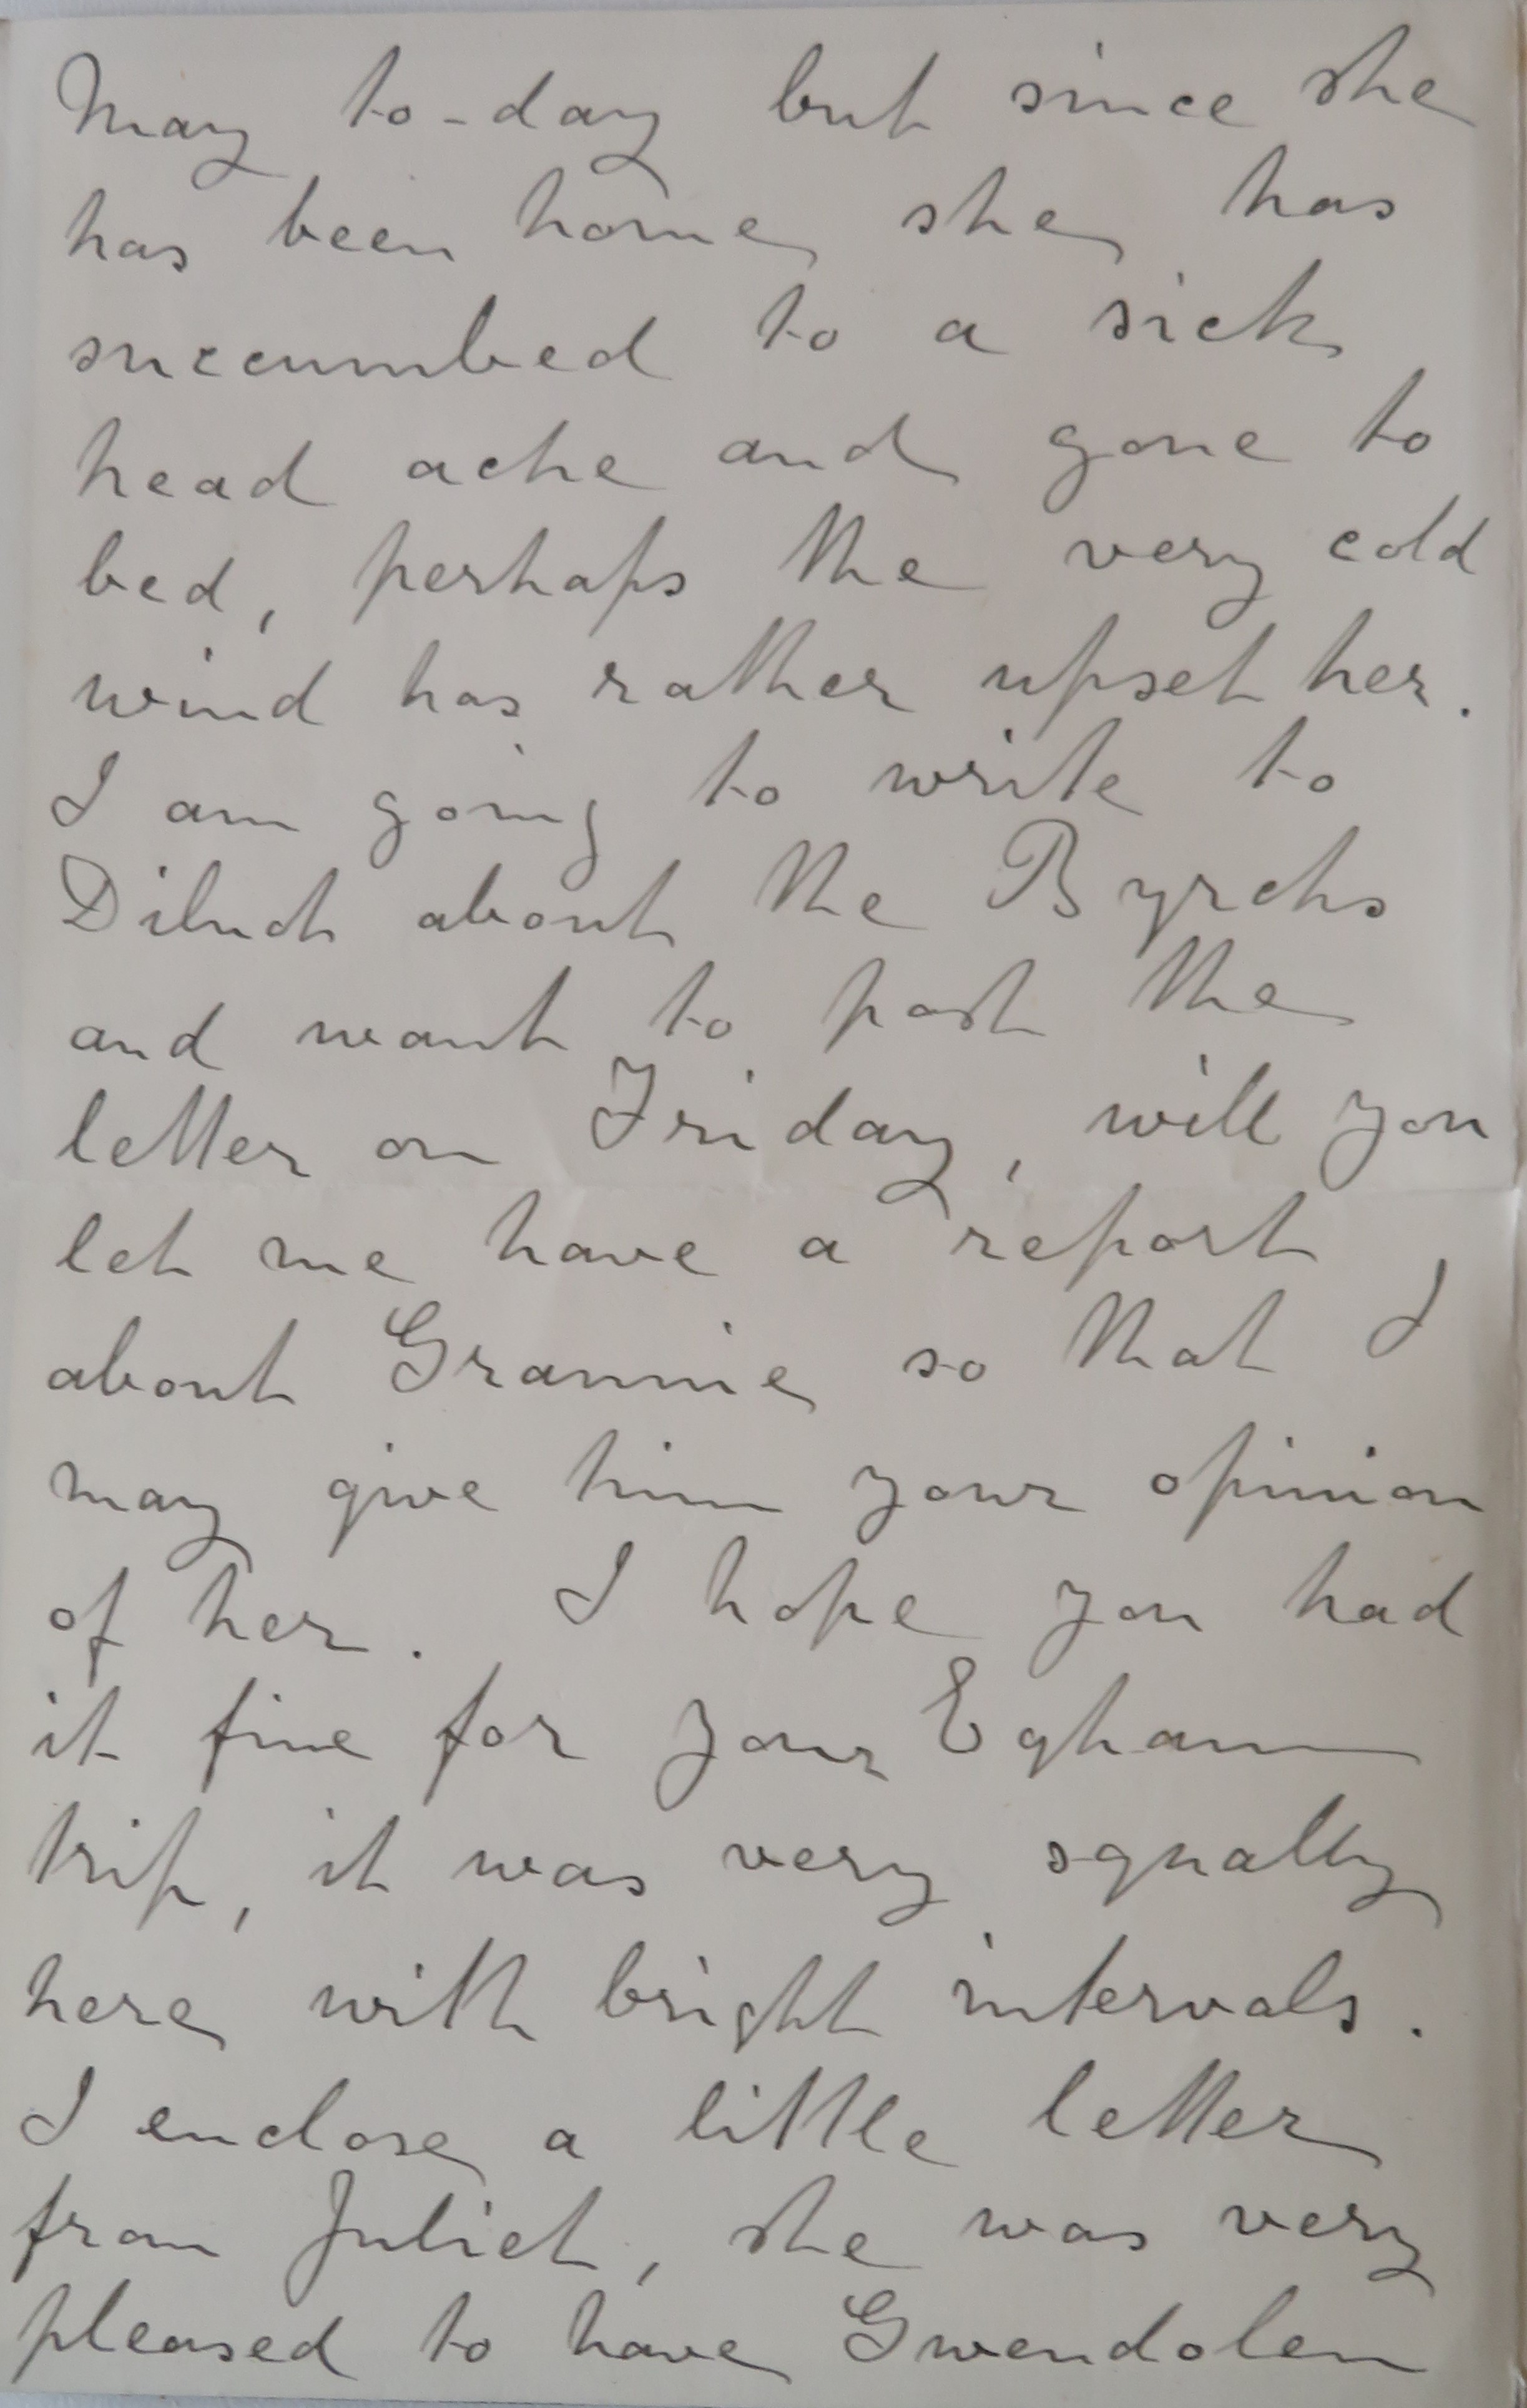 May to-day but since she
has been home she has
succumbed to a sick
head ache and gone to
bed, perhaps the very cold
wind has rather upset her.
I am going to write to
about the Byrchs
and want to post the
letter on Friday, will you
let me have a report
about Grannie so that I
may give him your opinion
of her. I hope you had
it fine for your Egham
trip, it was very squally
here with bright intervals.
I enclose a little letter
from Juliet, she was very
pleased to have Gwendolen